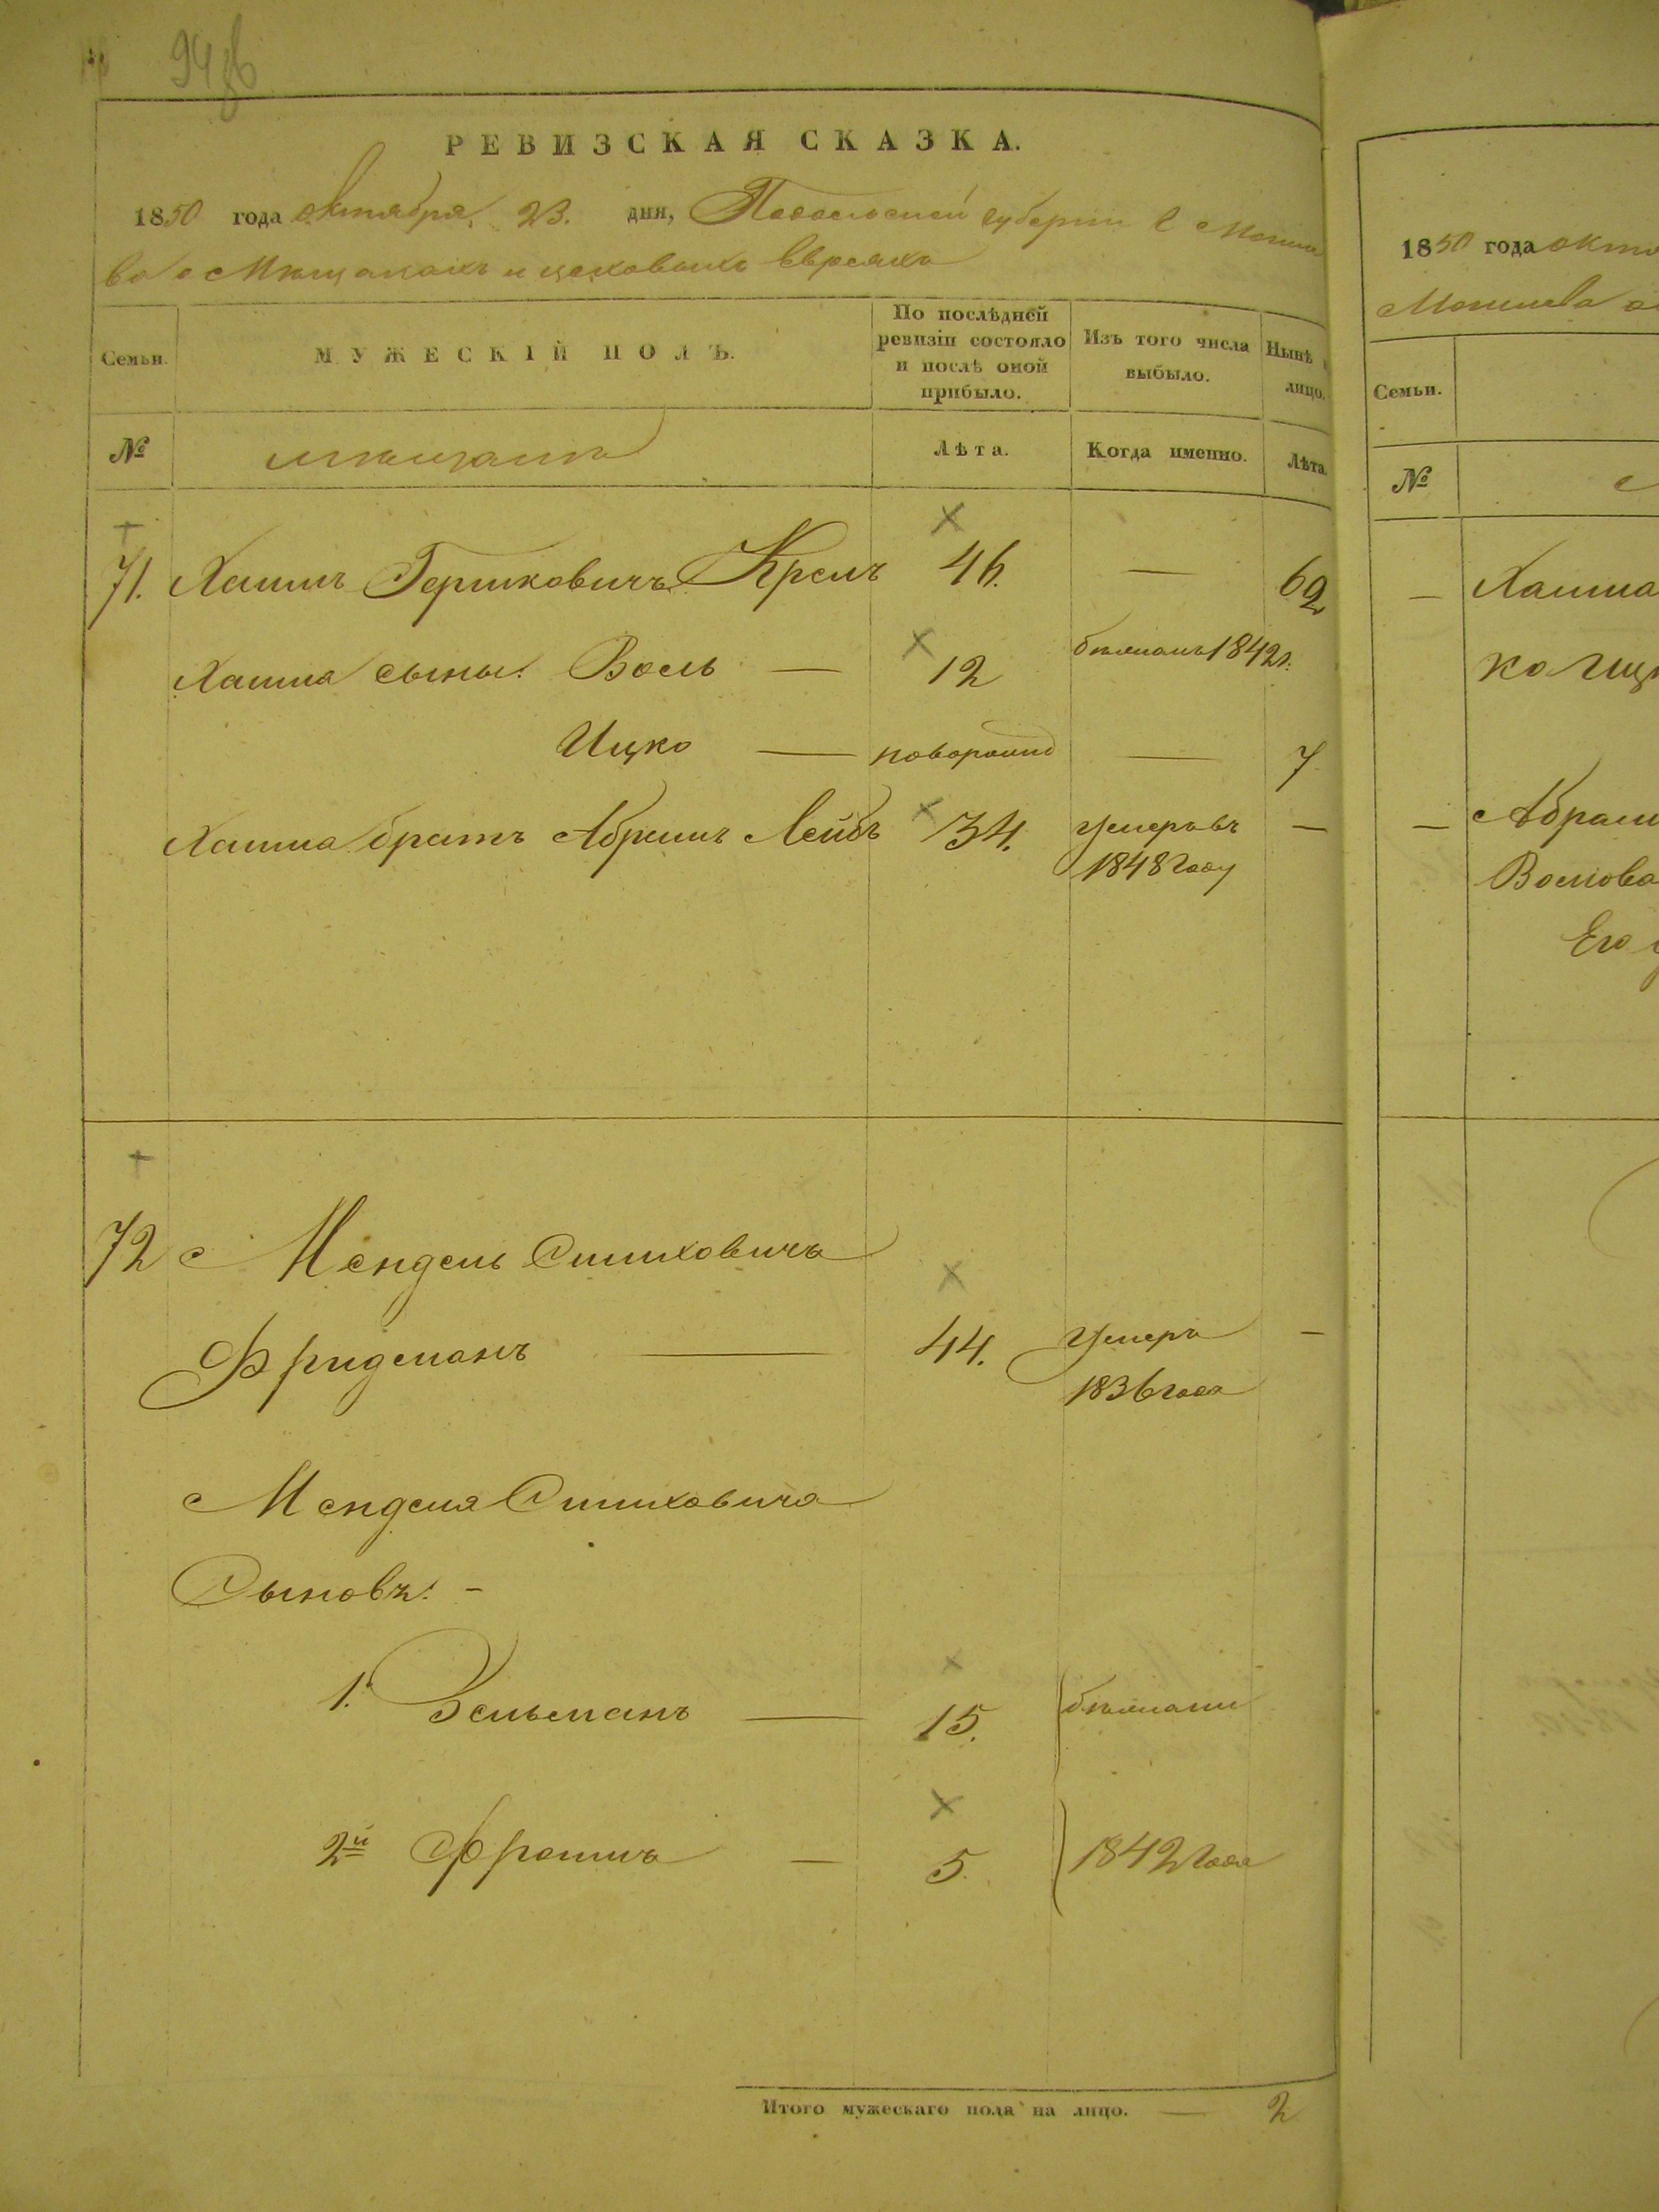 94
РЕВИЗСКАЯ СКАЗКА.
1850 года октября 23. дня, Подольской губерніи г Могиле
ва о Мѣщанахъ и цеховыхъ Евреяхъ
Семьи.
МУЖЕСКІЙ ПОЛЪ.
По послѣдней ревизіи состояло и послѣ оной прибыло.
Изъ того числа выбыло.
Нынѣ
лицо.
№
мѣщане
Лѣта.
Когда именно.
Лѣта
71. Хаимъ Гершковичъ Кремъ 46. — 62
Хаима сыны: Волъ — 12 бѣжалъ 1842 г.
Ицко — новорожд — 7
Хаима братъ Абрамъ Лейбъ 34. умеръ въ —
1848 году
72 Мендель Симховичъ
Фридманъ — 44. Умеръ —
1836 года
Менделя Симховича
Сыновъ: -
1. Зельманъ — 15. бѣжали
2й Фроимъ — 5. 1842 года
Итого мужескаго пола на лицо. — 2
1850 года окт
Могилева о
Семьи.
№
— Хаима
ко Гиц
— Абрам
Вольова
Его